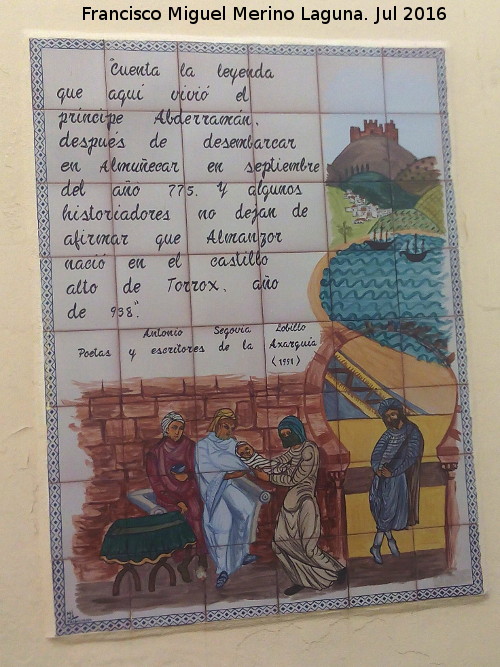 Francisco Miguel Merino Laguna. Jul 2016
"Cuenta la leyenda
que aquí vivió el
príncipe Abderramán,
después de desembarcar
en Almuñecar en septiembre
del año 775. Y algunos
historiadores no dejan de
afirmar que Almanzor
nació en el castillo
alto de Torrox, año
de 938".
Antonio Segovia Lobillo
Poetas y escritores de la Axarquía
(1991)